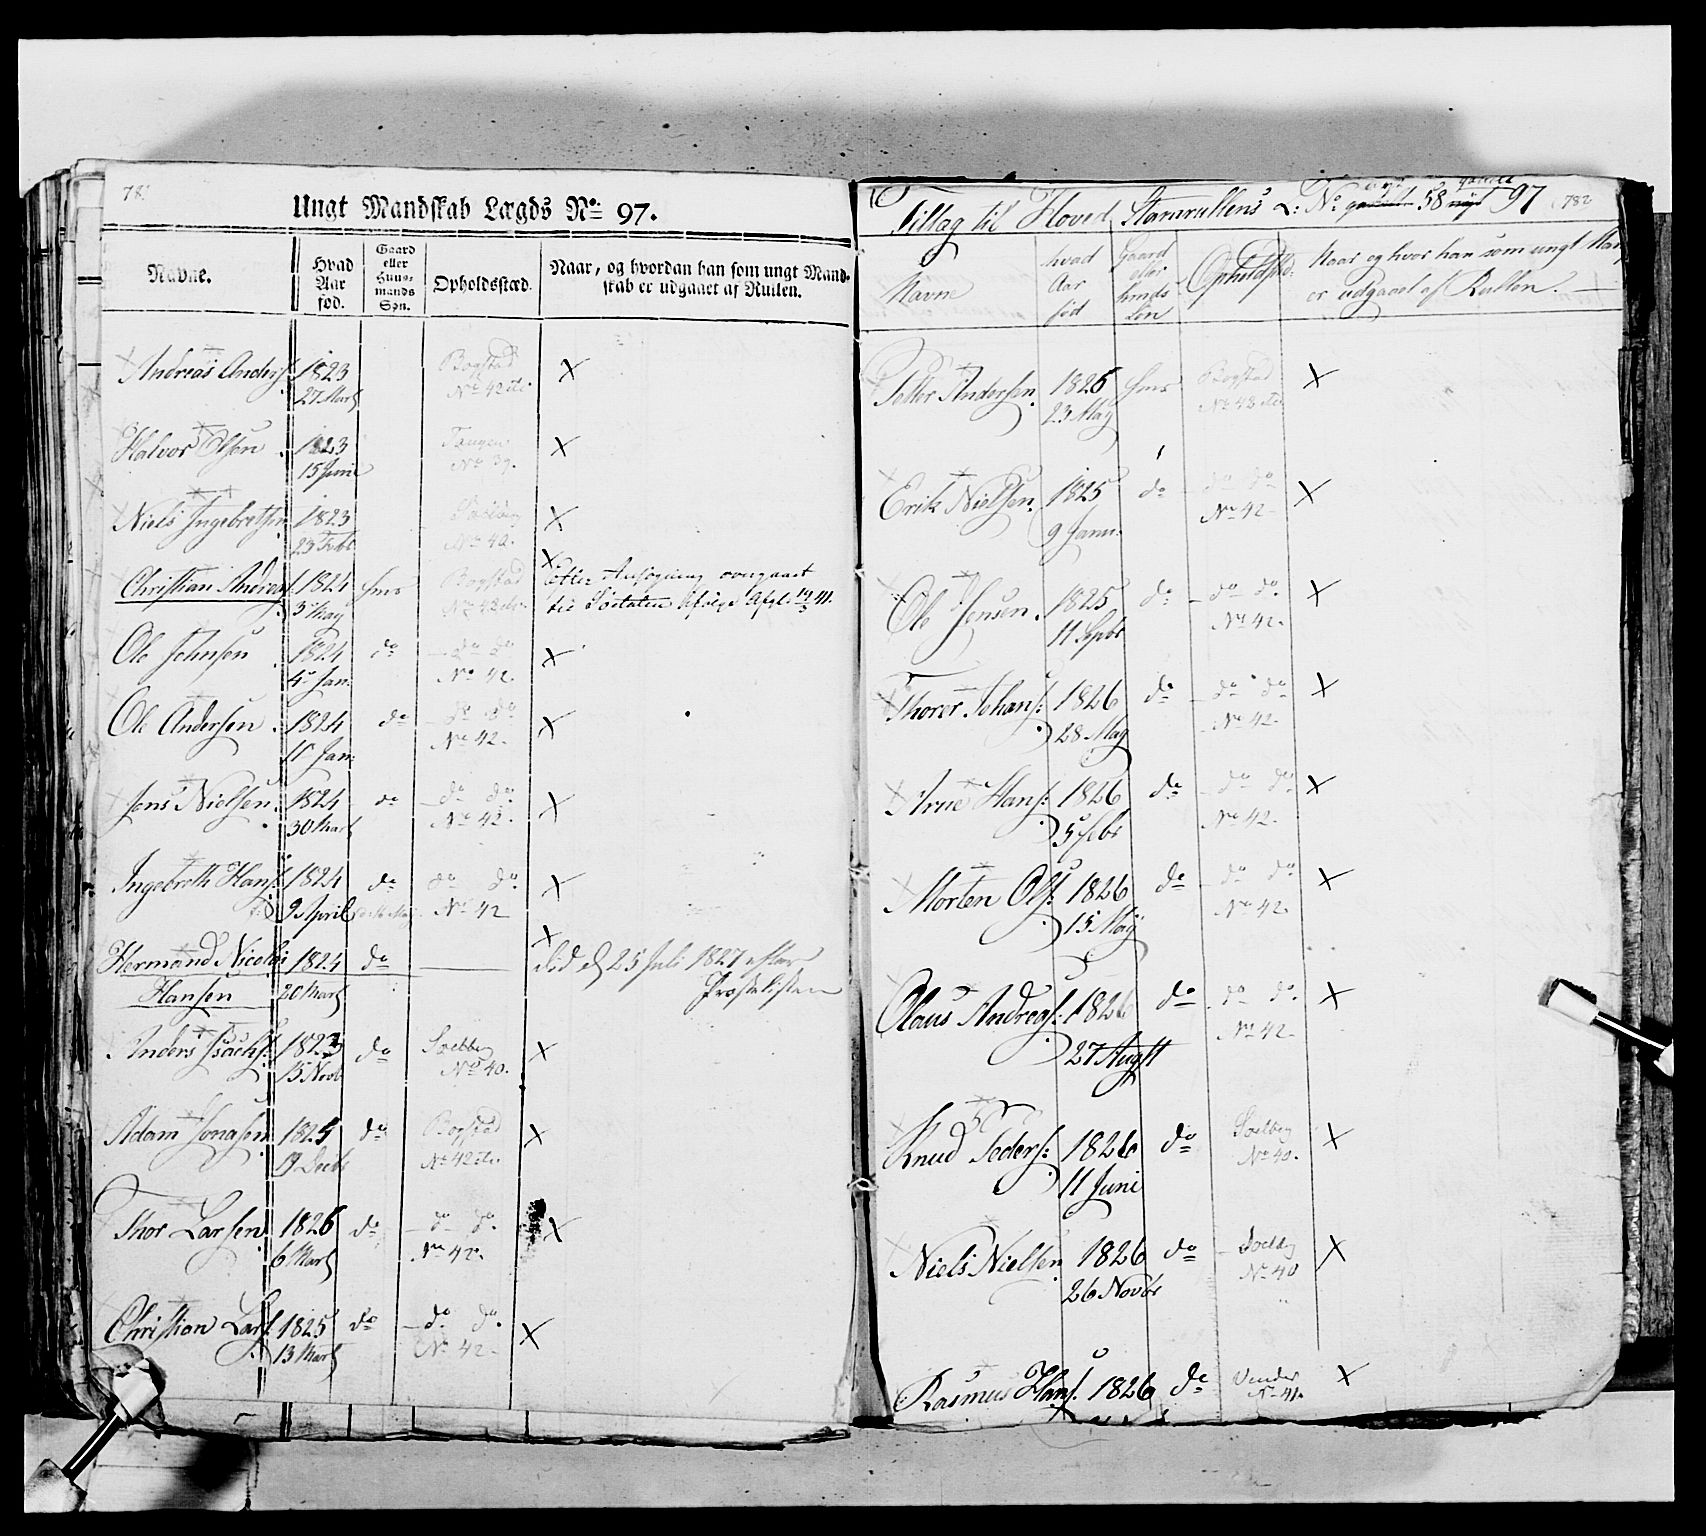 Ungt Mandskab Lægds No 97.
Navne.
Hvad Aar fød.
Gaard eller Huusmands Søn.
Opholdsstæd.
Naar, og hvordan han som ungt Mandskab er udgaaet af Rullen.
Andreas Anders. 1823 Bogstad X
27 Marts No 42
Halvor Olsen 1823 Tangen X
15 Junii No 39.
Niels Ingebretsen 1823 X
23 Febr
Christian Andreas. 1824 hms Bogstad X efter Ansøgning overgaaet
3 May No 42 til
Ole Johnsen 1824 do do do X
4 Jan: No 42.
Ole Andersen 1824 do do do X
11 Jan: No 42.
Jens Nielsen 1824 do do do X
30 Marts No 42.
Ingebreth Hans. 1824 do do do X
9 April No 42
Hermand Nicolai 1824 do X død d 25 Juli 1827 efter
Hansen 20 Marts Præstelisten
Anders Isachs. 1823 do Soelberg X
15 Novb No 40.
Adam Jonasen 1825 do Bogstad X
19 Decbr No 42
Thor Larsen 1826 do do do X
6 Marts No 42.
Christian Lars. 1825 do do do X
13 Marts No 42.
Tillag til Hoved Stamrullens L: No 58 97 782
Navne
hvad Aar fød
Gaard eller hmds Søn
Opholdsstæd:
Naar og hvor han som ungt Man
er udgaaet af Rullen.
Petter Andersen 1826 hms Bogstad X
23 May No 42
Erik Nielsen 1825 do do do X
9 Janu. No 42
Ole Jensen 1825 do do do X
11 Sepbr No 42.
Thorer Johans: 1826 do do do X
28 May No 42.
Arne Hans: 1826 do do do X
5 No 42.
Morten Ols: 1826 do do do X
15 May No 42.
Olaus Andreas: 1826 do do do X
27 Augst No 42
Knud Peders: 1826 do Soelberg X
11 Juni No 40.
Niels Nielsen 1826 do Soelberg X
26 Novbr No 40
Rasmus Hans. 1826 do X
No 41.